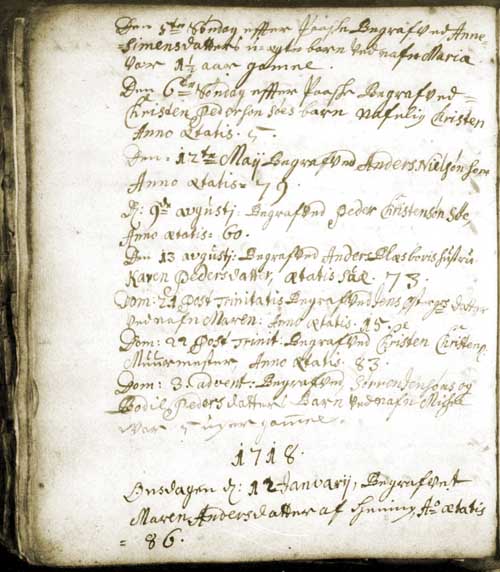 Den 5te Søndag effter Paaske Begrafved Anne
Simensdatters uægte barn ved nafn Maria
var 1½ aar gamel.
Den 6te Søndag effter Paaske Begrafved
Christen Pedersøn Søes barn nafnlig Christen
Anno Ætatis. 5.
Den. 12te May Begrafved Anders Nielsøn
Anno Ætatis = 79.
D: 9de Augustj. Begrafved Peder Christensøn Søe,
Anno ætatis = 60.
Den 13 augustj: Begrafved Anders Blæsboris Hustru
Karen Pedersdatter, Ætatis suæ. 73.
Dom: 21 Post Trinitatis Begrafved Jens datter
ved nafn Maren: Anno Ætatis. 15.
Dom: 22 Post Trinit: Begrafved Christen Christens.
Muurmester, Anno Ætatis. 83.
Dom: 3. advent. Begrafved Simen Jensøns og
Bodil Pedersdatters Barn ved nafn Michel
var 5 uger gammel.
1718.
Onsdagen d: 12 Januarij, Begrafvet
Maren Andersdatter af Ao ætatis
= 86.